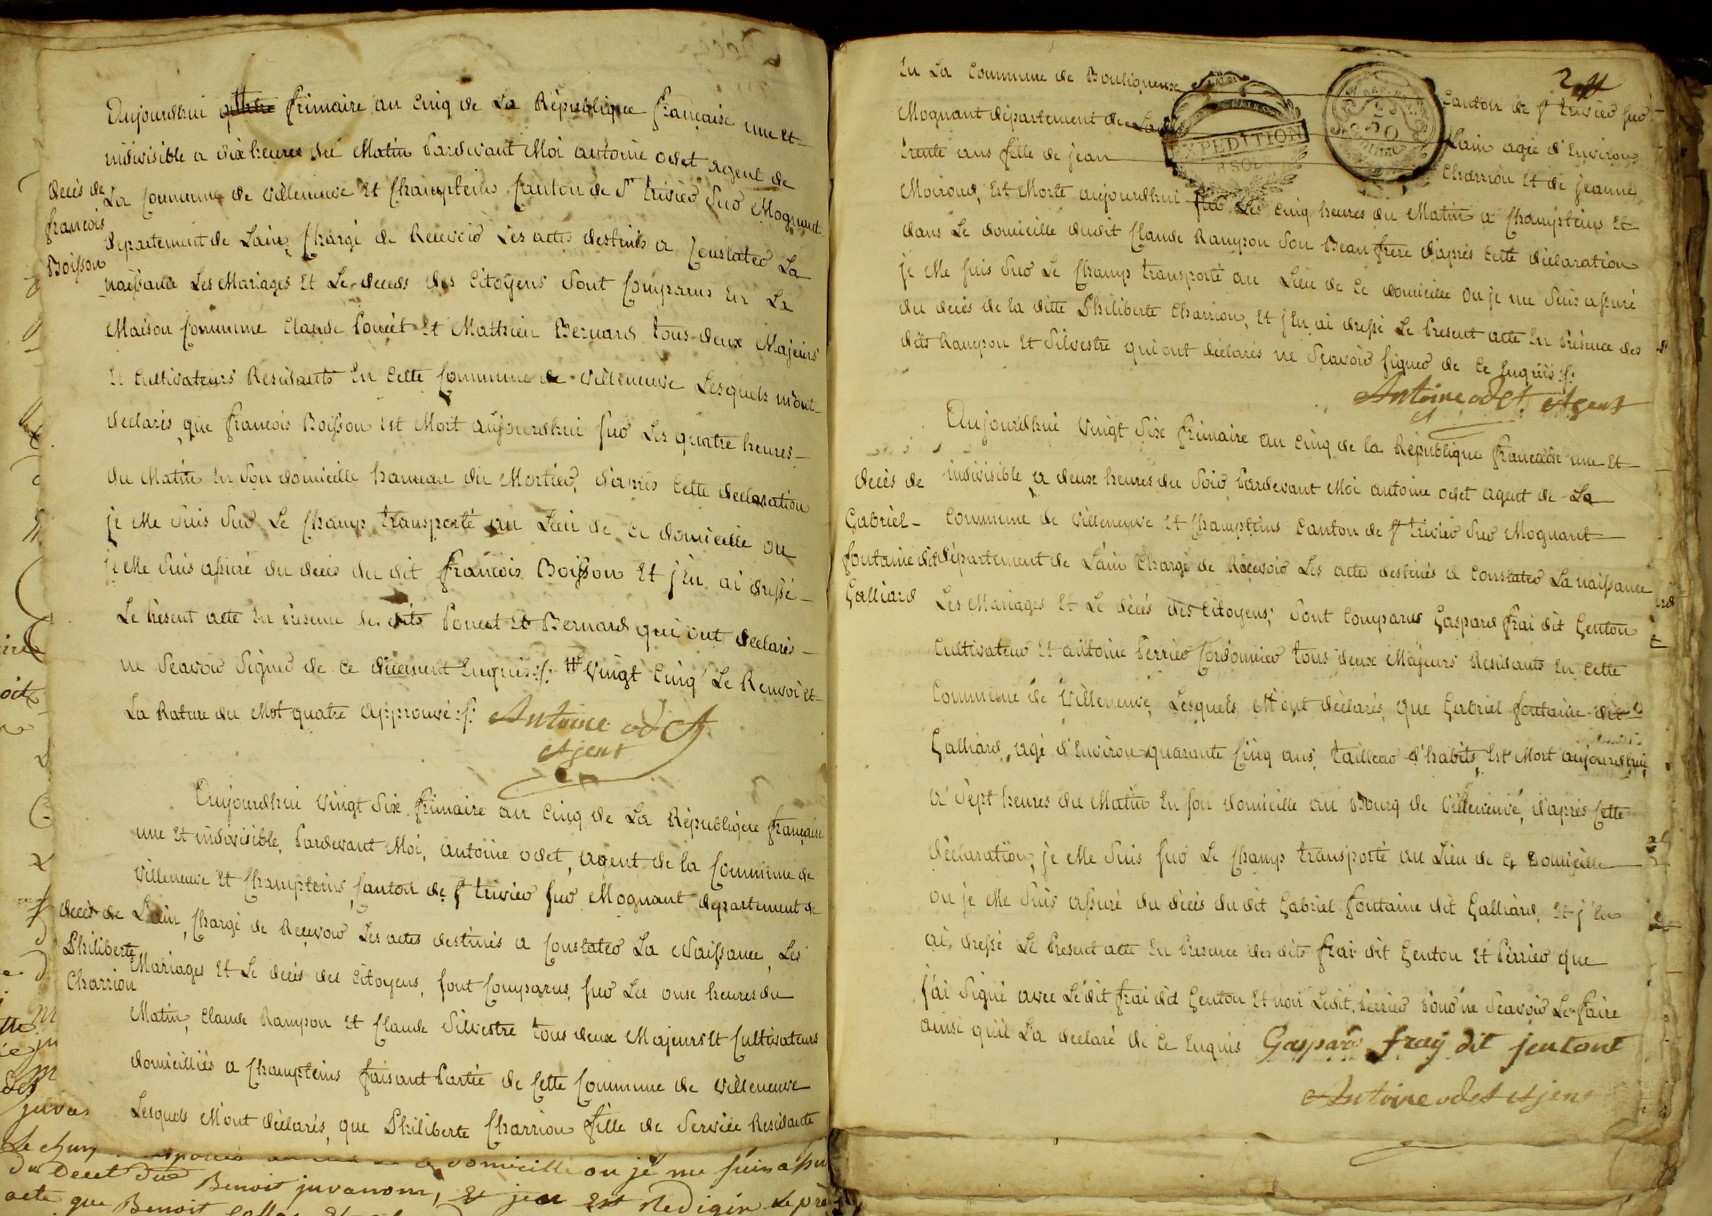 Aujourdhui quatre frimaire an Cinq de La République française une et
indivisible a dix heures du Matin Pardevant Moi antoine odet agent de
La Commune de villeneuve Et Champteins Canton de St trivier sur Mognant
departement de Lain, Chargé de Recevoir Les actes destinés a Constater La
naissance Les Mariages Et Le deceds des Citoyens sont Comparus En La
Maison Commune Claude Poncet Et Mathieu Bernard tous deux Majeurs
Et Cultivateurs Residants En Cette Commune de villeneuve Lesquels m'ont
declarés, que francois Boisson Est Mort aujourdhui sur Les quatre heures
du Matin En son domicille hameau du Mortier, d'après Cette declaration
je Me suis sur Le Champ transporté au Lieu de Ce domicille ou
je Me suis assuré du décès du dit francois Boisson Et j'En ai dressé
Le Present acte En présence des dits Poncet Et Bernard qui ont declarés
ne Scavoir Signer de Ce Enquis ./. # Vingt Cinq Le Renvoi et
La Rature du Mot quatre approuvé ./. Antoine odet
Ajent
décès de
francois
Boisson
Aujourdhui vingt six frimaire an Cinq de La République française
une Et indivisible, Pardevant Moi, antoine odet, agent de la Commune de
villeneuve Et Champteins, Canton de St trivier sur Mognant departement de
L'ain, Chargé de Recevoir Les actes destinés a Constater La Naissance, Les
Mariages Et Le décès des Citoyens, sont Comparus, sur Les onse heures du
Matin, Claude Rampon Et Claude Silvestre tous deux Majeurs Et Cultivateurs
domiciliés a Champteins faisant Partie de Cette Commune de villeneuve
Lesquels M'ont déclarés, que Philiberte Charrion fille de Service Residante
decès de
Philiberte
Charrion
En La Commune de Bouligneux Canton de St trivier sur
Mognant département de Lain agée d'Environ
trente ans fille de jean Charrion Et de jeanne
Moiroud, Est Morte aujourdhui sur Les Cinq heures du Matin a Champteins Et
dans Le domicille dudit Claude Rampon Son Beau frere d'après Cette déclaration
je Me suis sur Le Champ transporté au Lieu de Ce domicille ou je me suis assuré
du décès de la ditte Philiberte Charrion, Et j'En ai dressé Le Present acte En Présence des
dits Rampon Et Silvestre qui ont déclarés ne Scavoir signer de Ce Enquis ./.
Antoine odet Ajent
EXPEDITION
Aujourdhui vingt six frimaire an Cinq de la République francaise une Et
indivisible, a deux heures du Soir, Pardevant Moi antoine odet agent de La
Commune de villeneuve Et Champteins Canton de St trivier sur Mognant
département de L'ain Chargé de Recevoir Les actes destinés a Constater La naissance
Les Mariages Et Le décès des Citoyens, sont Comparus Gaspard frai dit Genton
Cultivateur Et antoine Perrier Cordonnier tous deux Majeurs Residants En Cette
Commune de Villeneuve, Lesquels M'ont déclarés, que Gabriel fontaine dit
Galliard, agé d'Environ quarante Cinq ans, tailleur d'habits, Est Mort aujourdhui
a Sept heures du Matin En son domicille au Bourg de Villeneuve, d'après Cette
déclaration, je Me suis sur Le Champ transporté au Lieu de Ce Domicille
ou je Me suis assuré du décès du dit Gabriel fontaine dit Galliard, Et j'En
ai dressé Le Present acte En Presence des dits frai dit Genton Et Perrier que
j'ai Signé avec Ledit frai dit Genton Et non Ledit Perrier Pour ne Scavoir Le faire
ainsi qu'il L'a declaré de Ce Enquis Gaspard fray dit jentont
Antoine odet Ajent
décès de
Gabriel
fontaine dit
Galliard
domicille ou je me suis assu
du Decet du Benoit juvanon, Et jen est Redigér le pré
acte que Benoit